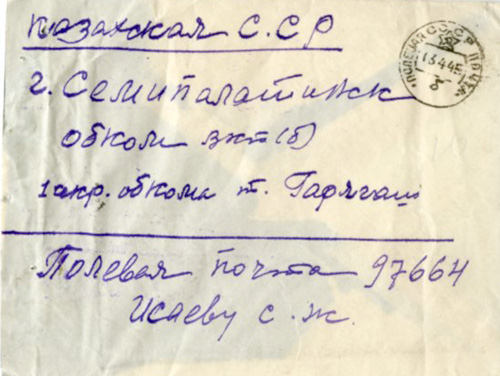 Казахская С.С.Р
г. Семипалатинск
обком вкп(б)
1 секр. обкома т.
Полевая почта 97664
Исаеву С. Ж.
ПОЛЕВАЯ ПОЧТА
13 4 45
б